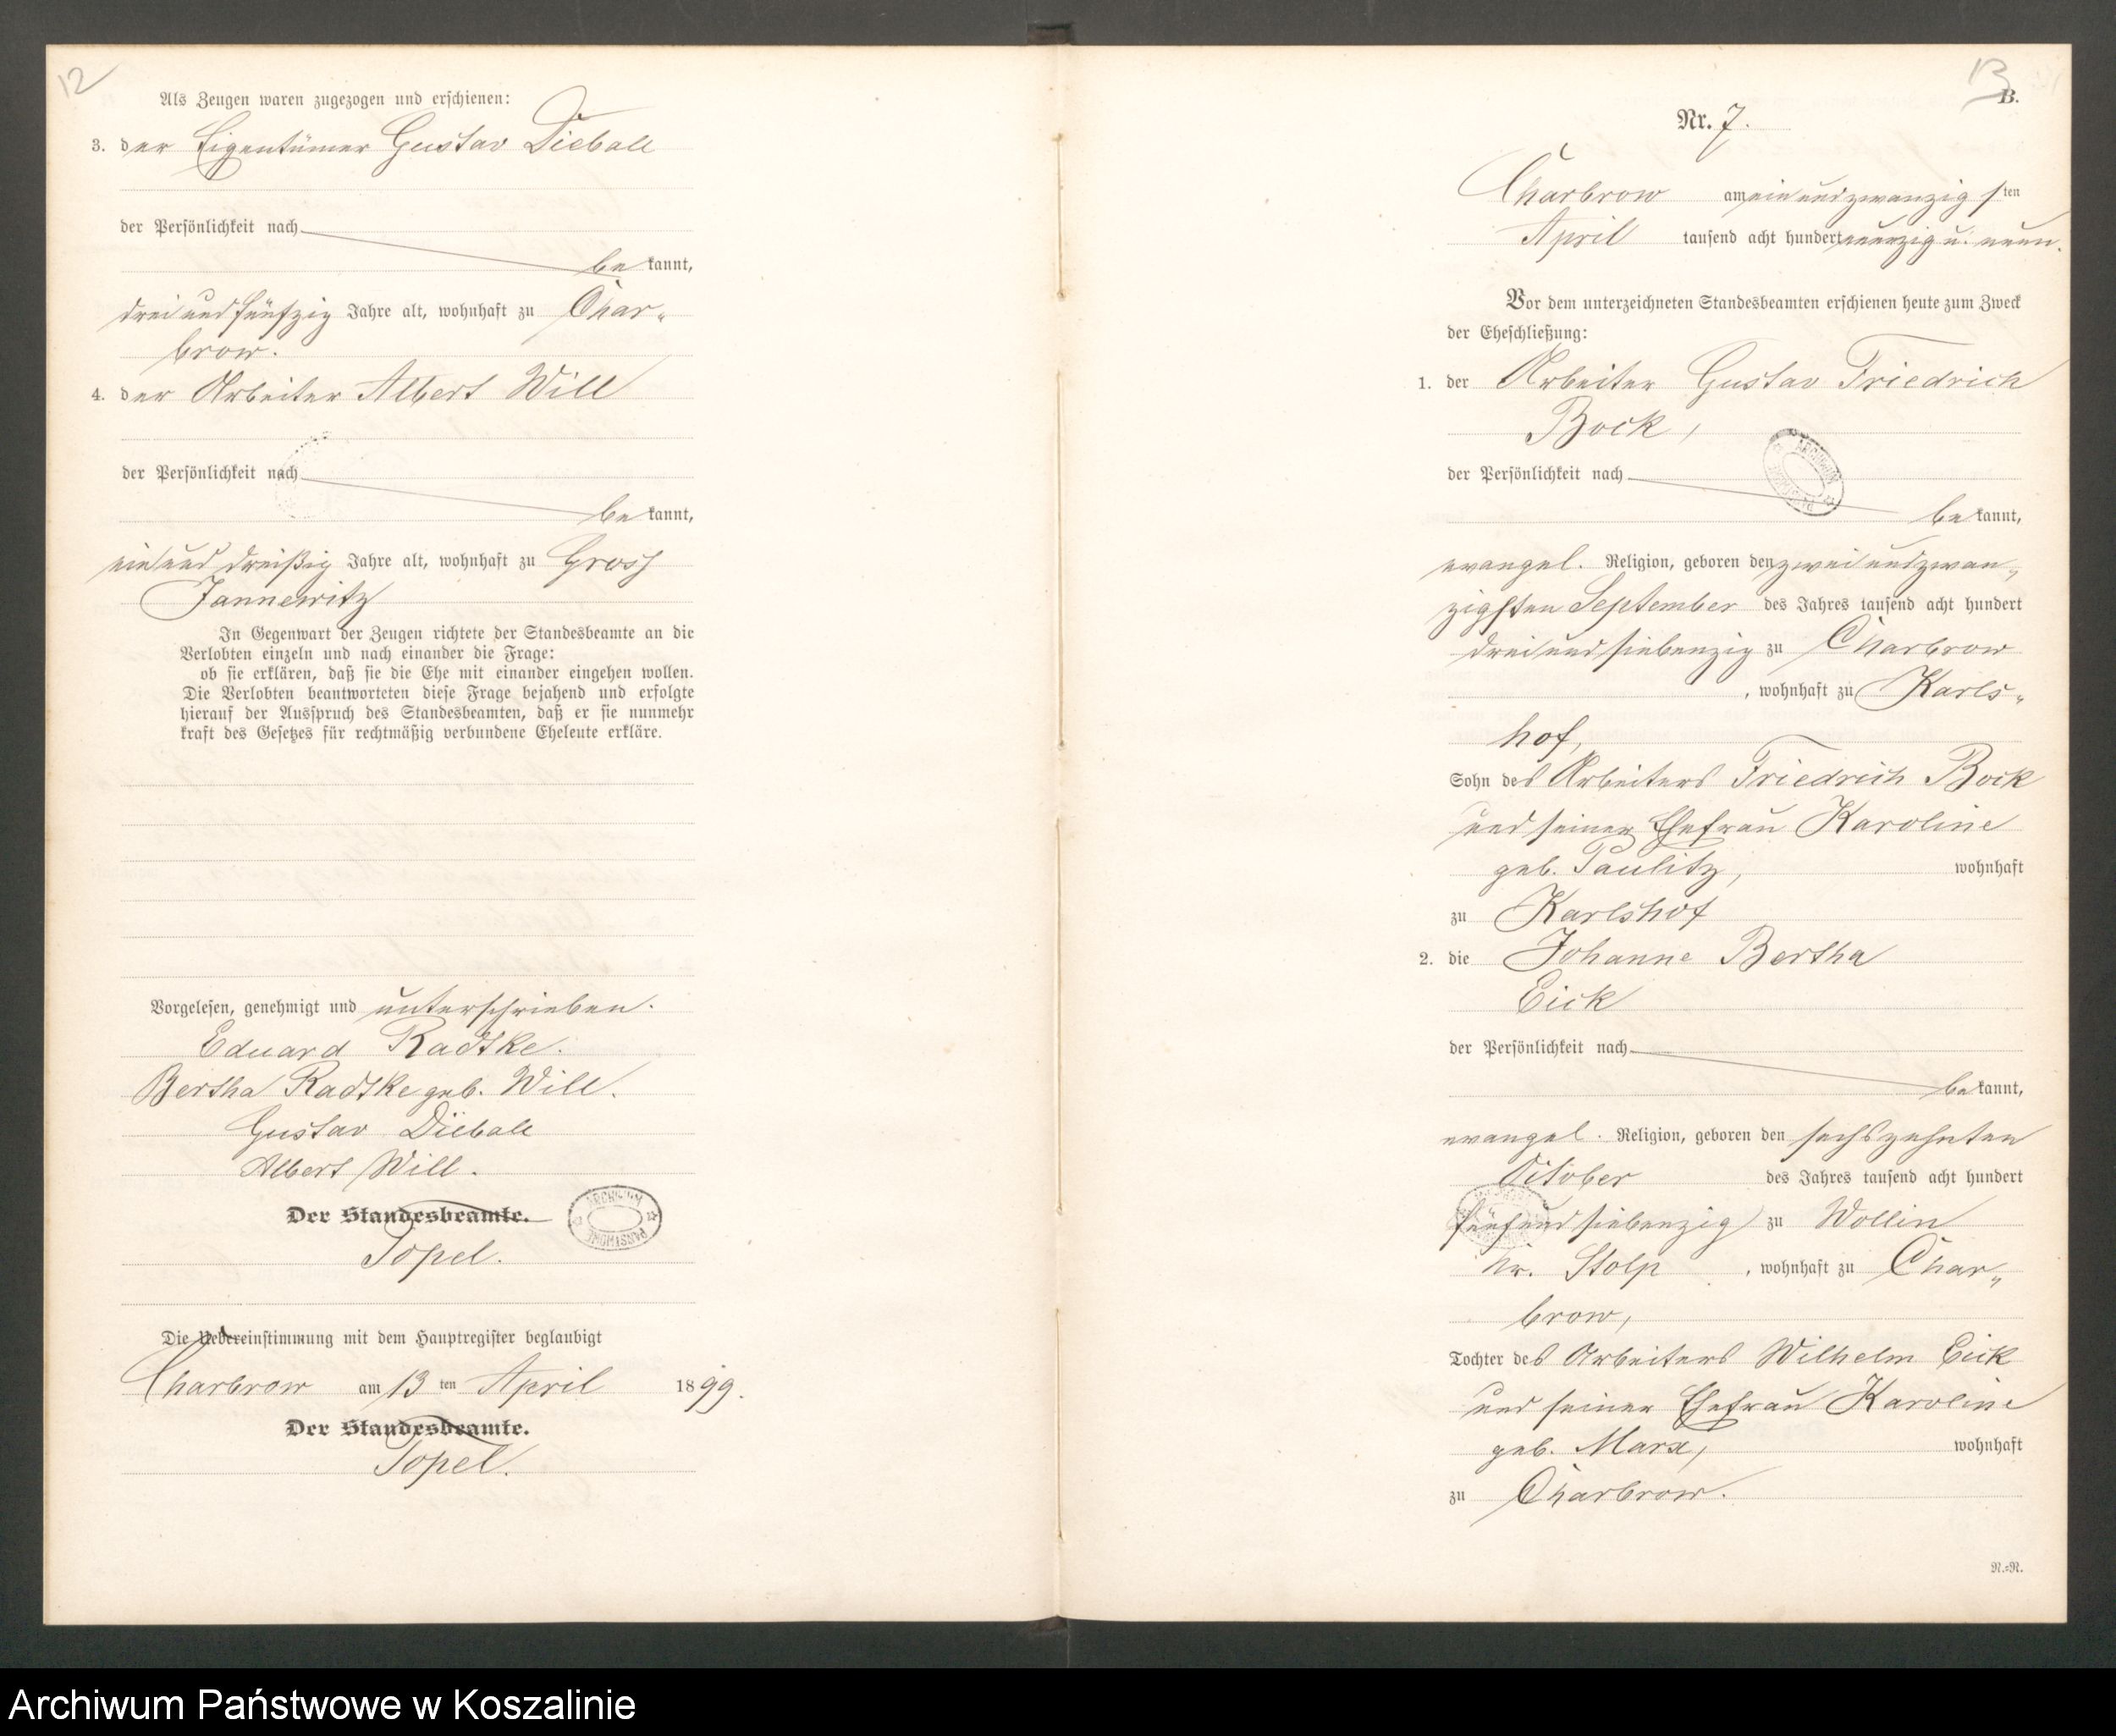 12
Als Zeugen waren zugezogen und erschienen:
3. der Eigentümer Gustav Dieball
der Persönlichkeit nach
be kannt,
drei und fünfzig Jahre alt, wohnhaft zu Char-
brow.
4. der Arbeiter Albert Will
der Persönlichkeit nach
be kannt,
ein und dreißig Jahre alt, wohnhaft zu Gross
Jannewitz
In Gegenwart der Zeugen richtete der Standesbeamte an die
Verlobten einzeln und nach einander die Frage:
ob sie erklären, daß sie die Ehe mit einander eingehen wollen.
Die Verlobten beantworteten diese Frage bejahend und erfolgte
hierauf der Ausspruch des Standesbeamten, daß er sie nunmehr
kraft des Gesetzes für rechtmäßig verbundene Eheleute erkläre.
Vorgelesen, genehmigt und unterschrieben.
Eduard Radtke.
Bertha Radtke geb. Will.
Gustav Dieball
Albert Will.
Der Standesbeamte.
ARCHIWUM PAŃSTWOWE
Topel.
Die Uebereinstimmung mit dem Hauptregister beglaubigt
Charbrow am 13 ten April 1899.
Der Standesbeamte.
Topel.
13
B.
Nr. 7.
Charbrow am ein und zwanzigsten
April tausend acht hundert neunzig u. neun.
Vor dem unterzeichneten Standesbeamten erschienen heute zum Zweck
der Eheschließung:
1. der Arbeiter Gustav Friedrich
Bock,
ARCHIWUM PAŃSTWOWE
der Persönlichkeit nach
be kannt,
evangel. Religion, geboren den zwei und zwan-
zigsten September des Jahres tausend acht hundert
drei und siebenzig zu Charbrow
, wohnhaft zu Karls-
hof,
Sohn des Arbeiters Friedrich Bock
und seiner Ehefrau Karoline
geb. Paulitz, wohnhaft
zu Karlshof
2. die Johanne Bertha
Eick
der Persönlichkeit nach
be kannt,
evangel. Religion, geboren den sechszehnten
October des Jahres tausend acht hundert
fünf und siebenzig zu Wollin
Kr. Stolp , wohnhaft zu Char-
brow,
Tochter des Arbeiters Wilhelm Eick
und seiner Ehefrau Karoline
geb. Marx, wohnhaft
zu Charbrow.
N.=N.
Archiwum Państwowe w Koszalinie